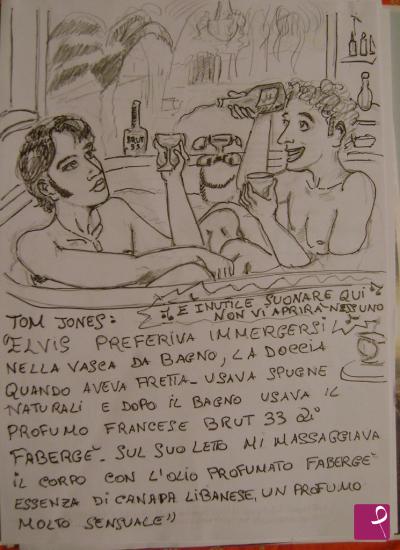 BRUT
33
È INUTILE SUONARE QUI
NON VI APRIRÀ NESSUNO
TOM JONES:
"ELVIS PREFERIVA IMMERGERSI
NELLA VASCA DA BAGNO, LA DOCCIA
QUANDO AVEVA FRETTA - USAVA SPUGNE
NATURALI E DOPO IL BAGNO USAVA IL
PROFUMO FRANCESE BRUT 33 di
FABERGÈ - SUL SUO LETO MI MASSAGGIAVA
IL CORPO CON L'OLIO PROFUMATO FABERGÈ
ESSENZA DI CANAPA LIBANESE, UN PROFUMO
MOLTO SENSUALE"